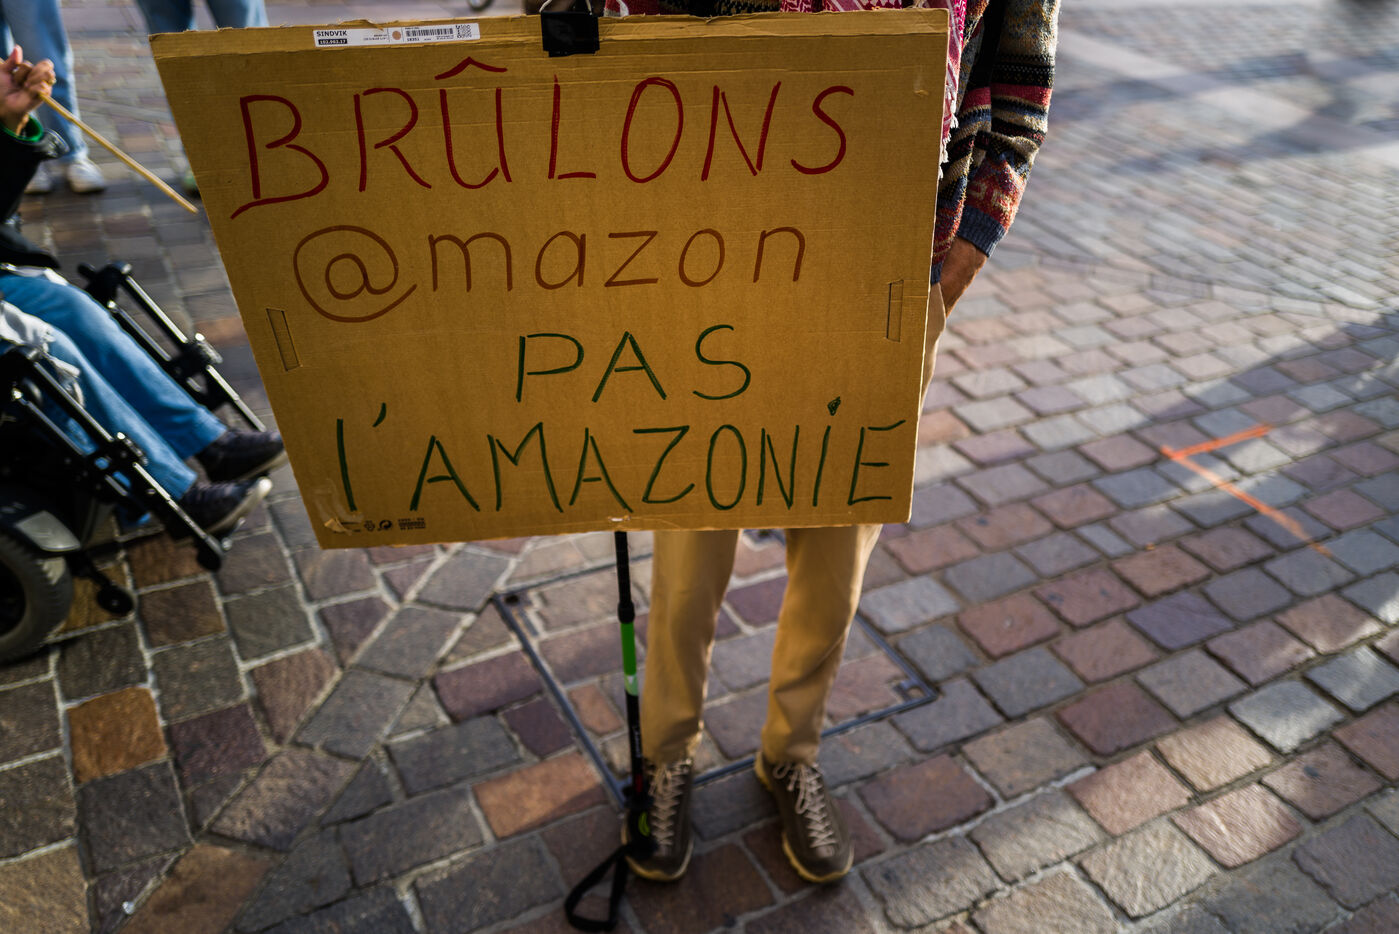 SINDVIK
BRÛLONS
@mazon
PAS
l'AMAZONiE